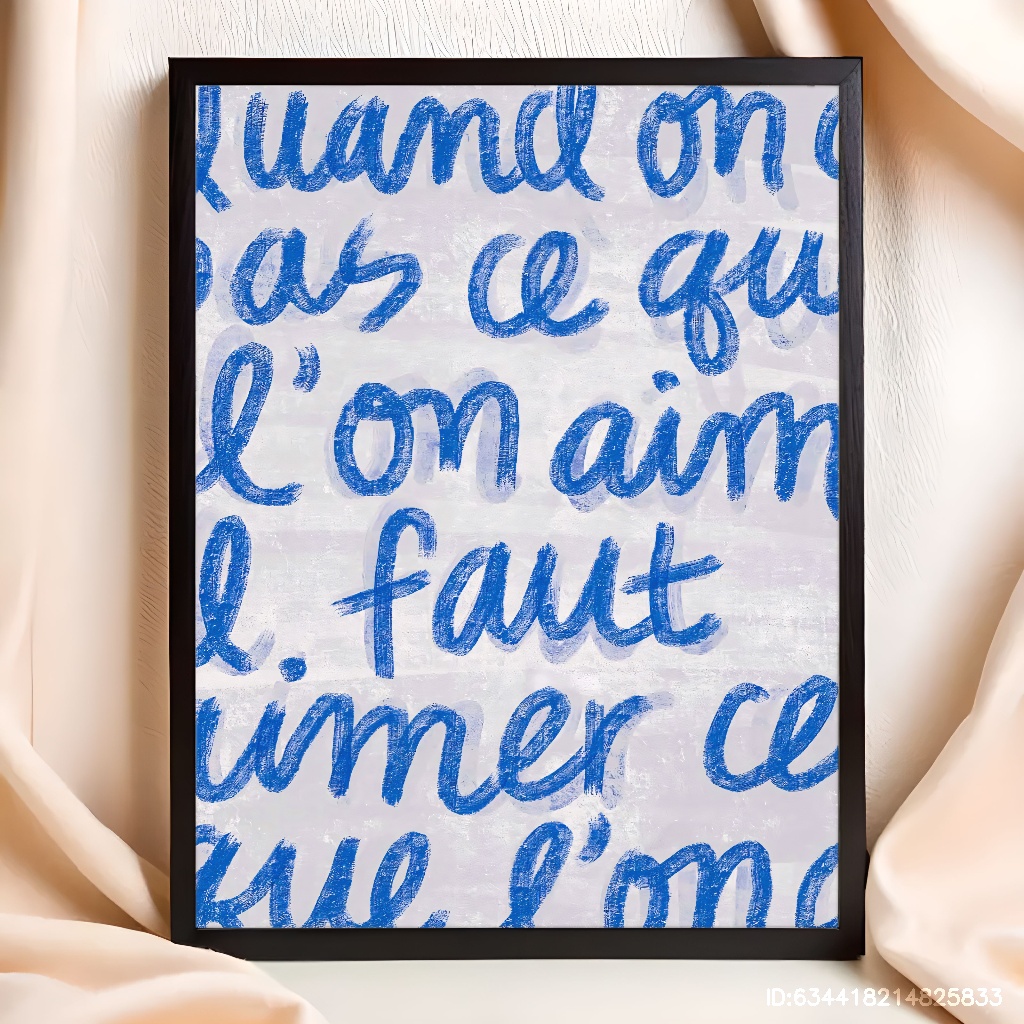 Quand on a
pas ce que
l'on aim
il faut
aimer ce
que l'on a
ID:634418214825833